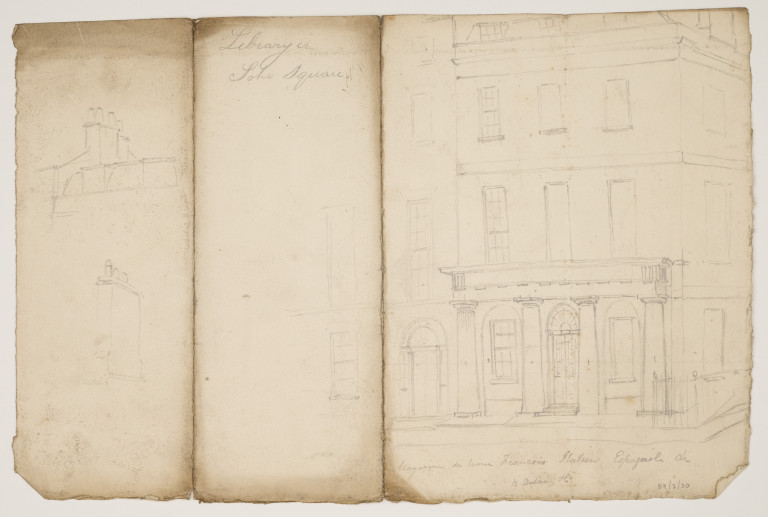 Library in
Soho Square
Magazine de livres Francois Italien Espagnole &c
89/2/20